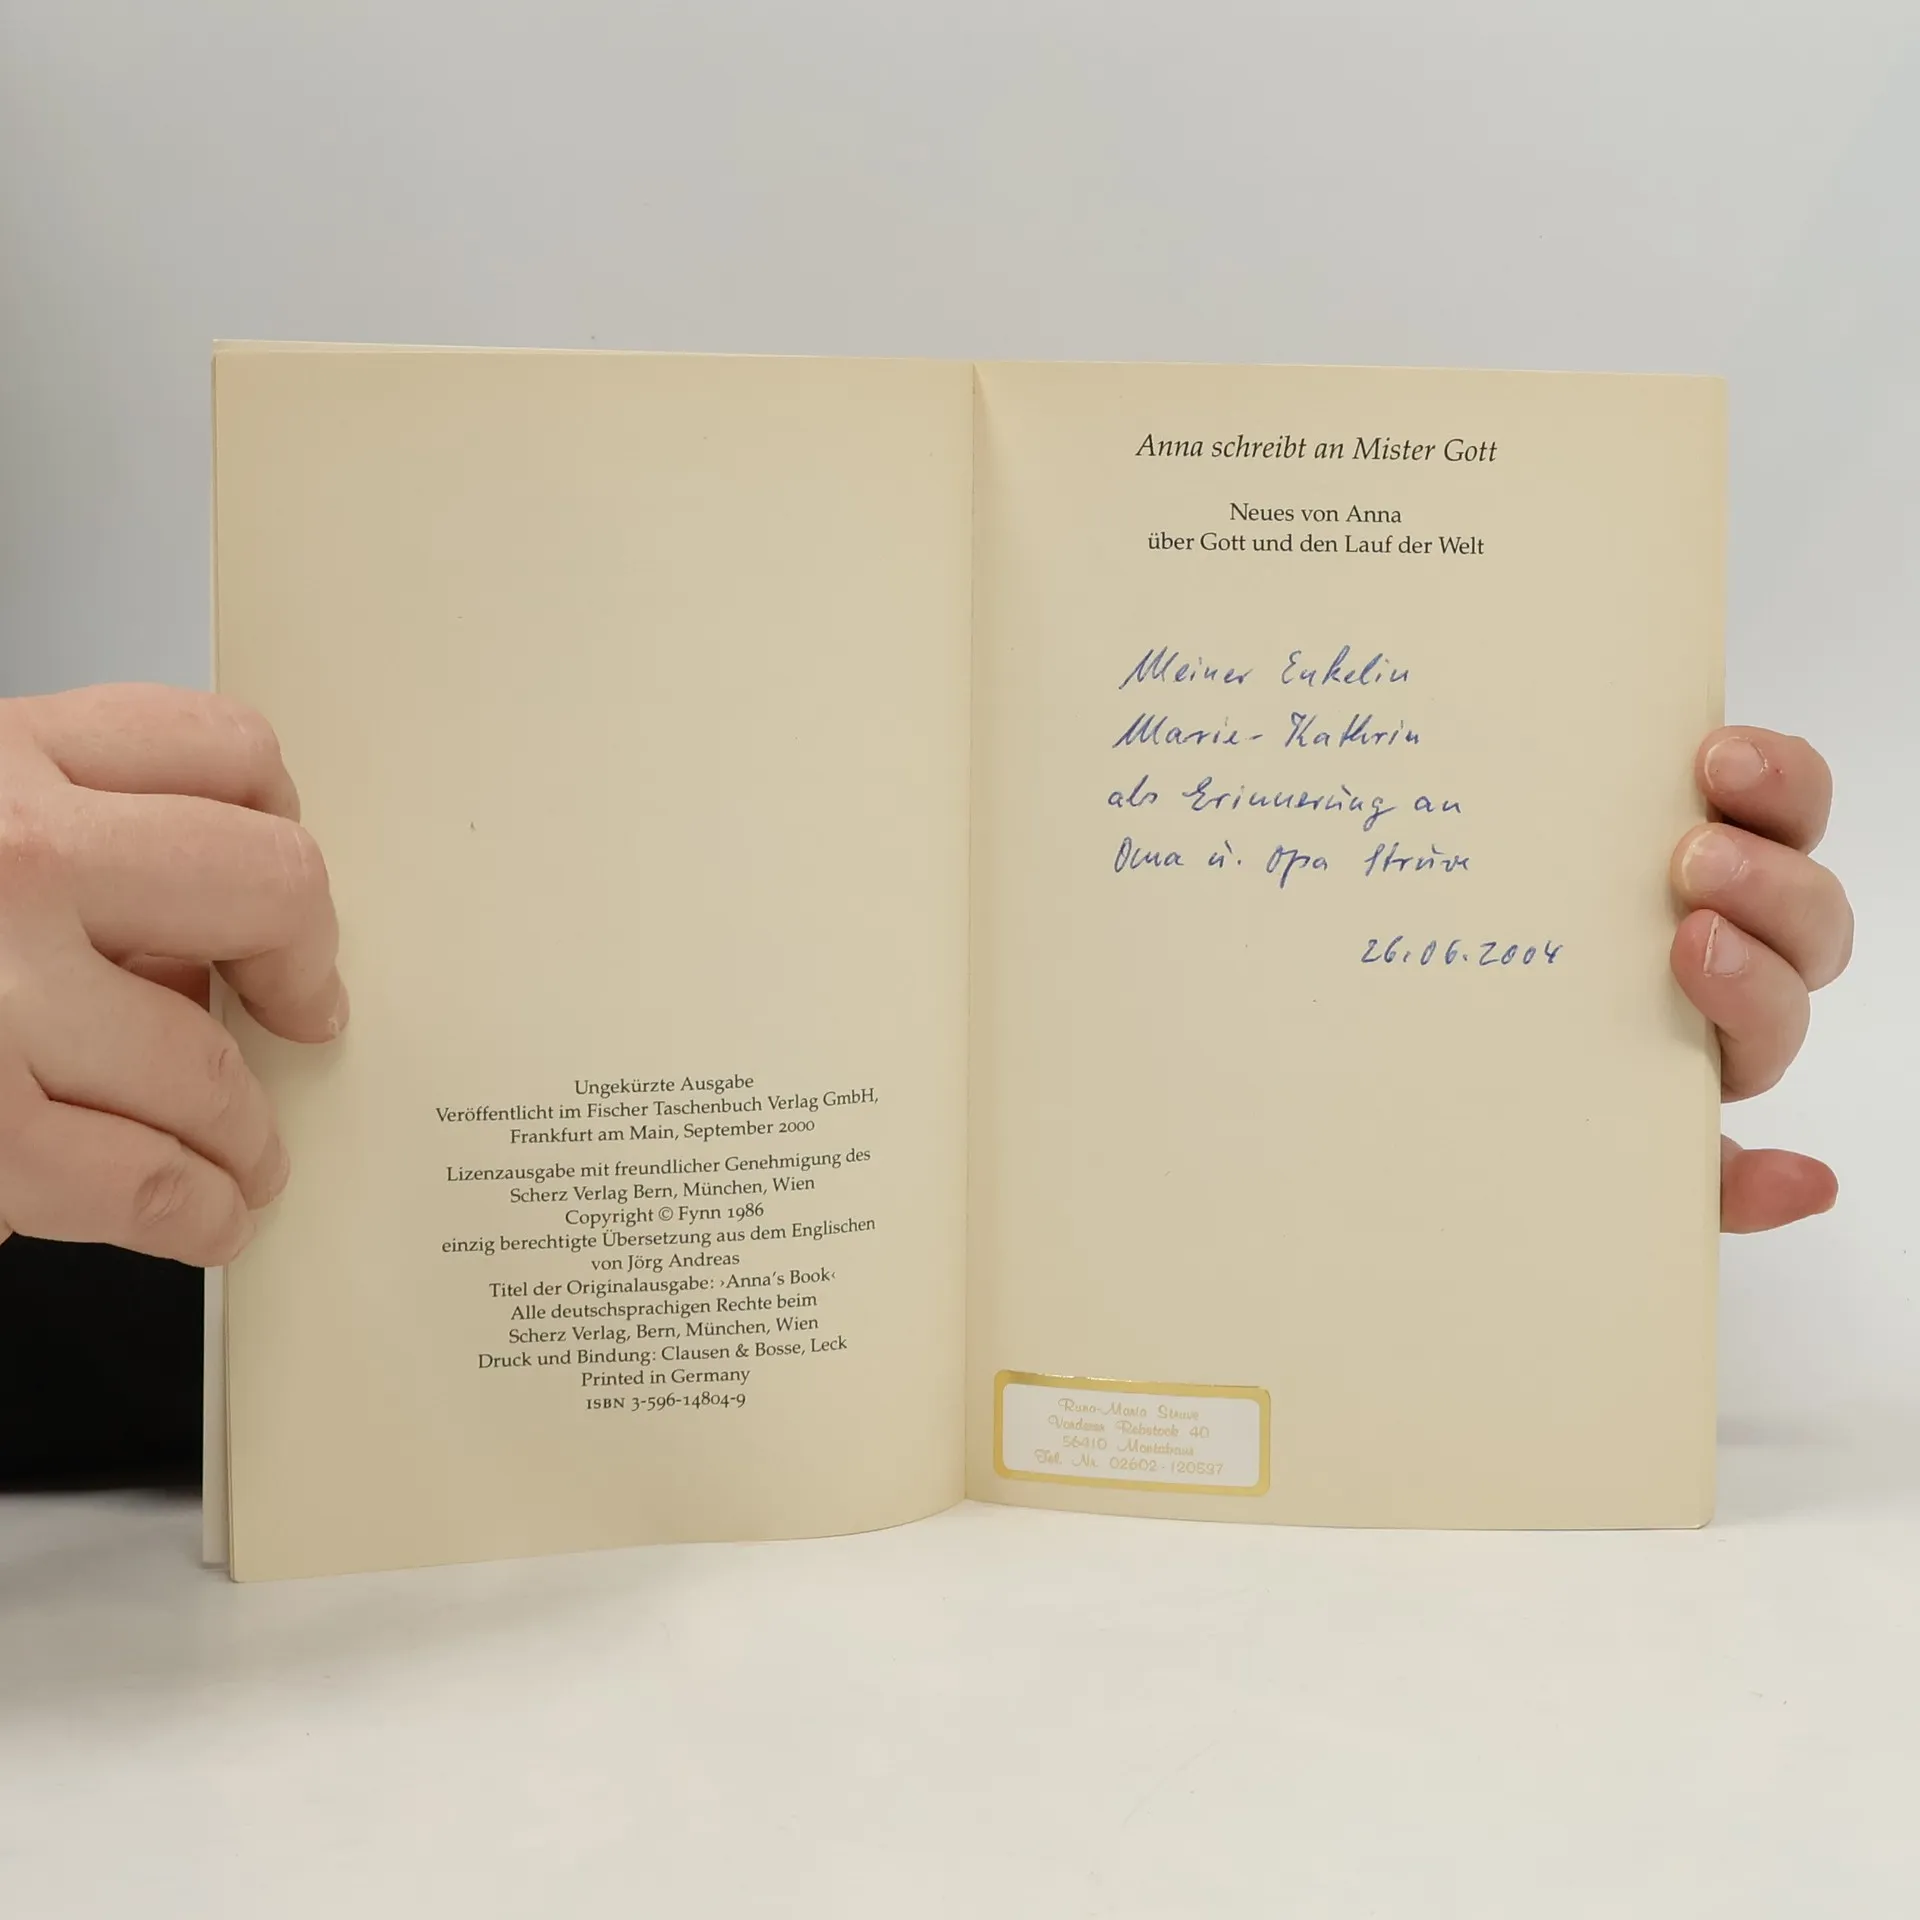 Ungekürzte Ausgabe
Veröffentlicht im Fischer Taschenbuch Verlag GmbH,
Frankfurt am Main, September 2000
Lizenzausgabe mit freundlicher Genehmigung des
Scherz Verlag Bern, München, Wien
Copyright © Fynn 1986
einzig berechtigte Übersetzung aus dem Englischen
von Jörg Andreas
Titel der Originalausgabe: ›Anna's Book‹
Alle deutschsprachigen Rechte beim
Scherz Verlag, Bern, München, Wien
Druck und Bindung: Clausen & Bosse, Leck
Printed in Germany
ISBN 3-596-14804-9
Anna schreibt an Mister Gott
Neues von Anna
über Gott und den Lauf der Welt
Meiner Enkelin
Marie-Kathrin
als Erinnerung an
Oma u. Opa Struve
26.06.2004
Struve
40
56410
Tel. Nr. 02602-120537